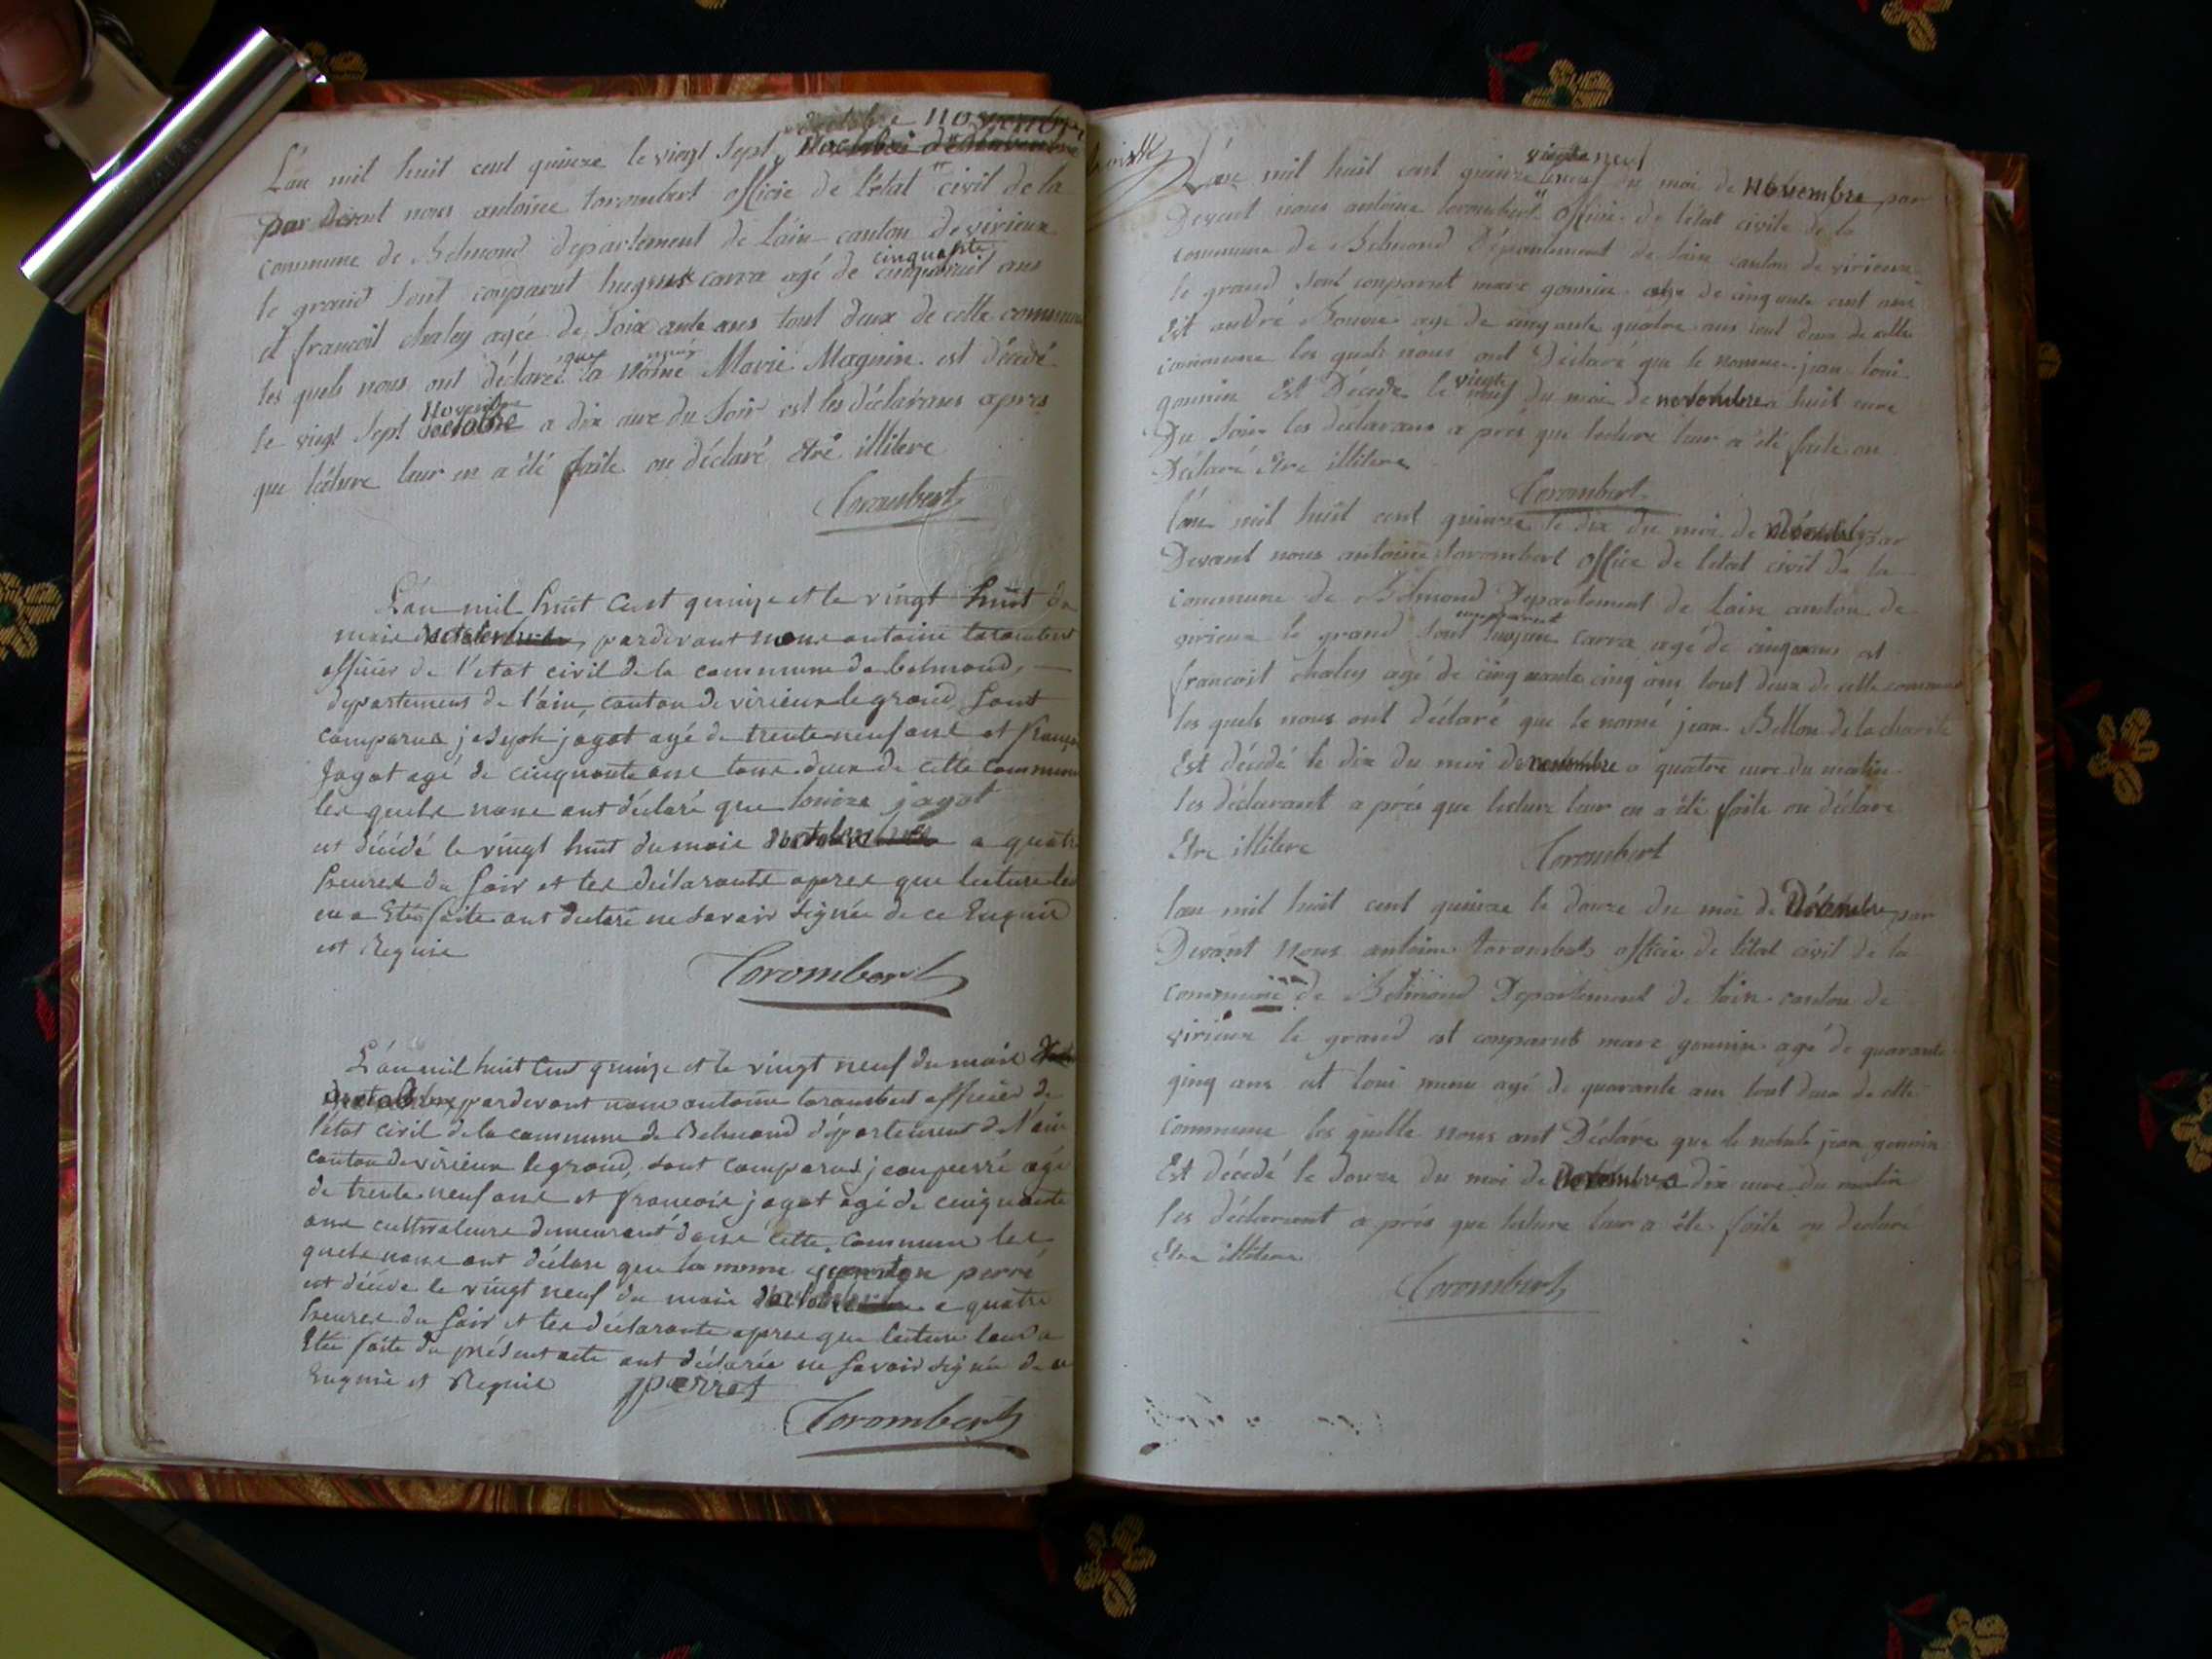 novembre
L'an mil huit cent quinze le vingt Sept
par devant nous antoine torombert officie de l'etat civil de la
commune de Belmond departement de l'ain canton de virieux
cinquante
le grand sont conparut carra agé de ans
et francoit chaley agée de Soix ante ans tout deux de cette commune
que
les quels nous ont déclaree la nomé Marie Magnin est décedé
Novembre
le vingt Sept octobre a dix eure du Soir est les déclarans apres
que lecture leur en a été faite on déclaré etre illitere
Torombert
L'an mil huit Cent quinze et le vingt huit du
mois pardevant nous antoine torombert
officier de l'etat civil de la commune de belmond,
departement de l'ain, canton de virieu le grand, sont
comparus joseph jagot agé de trente neuf ans et françois
Jagot agé de cinquante ans tous deux de cette commune
les quels nous ont déclaré que louize jagot
est décédé le vingt huit du mois a quatre
heures du soir et les déclarants apres que lecture leur
en a Etée faite ont declaré ne savoir signée de ce Enquis
et Requis
Torombert
L'an mil huit Cent quinze et le vingt neuf du mois
pardevant nous antoine torombert officier de
l'etat civil de la commune de Belmond département de l'ain
canton de virieu le grand, sont comparus jean pierre agé
de trente neuf ans et francois jagot agé de cinquante
ans cultivateurs demeurant dans cette commune les
quels nous ont déclare que la nomé perré
est décédé le vingt neuf du mois a quatre
heures du soir et les déclarants apres que lecture leur a
Etée faite du présent acte ont déclarée ne savoir signée de ce
Enquis et Requis pierrot
Torombert
vingte neuf
L'an mil huit cent quinze neuf du moi de Novembre par
Devent nous antoine torombert officie de l'etat civile de la
commune de Belmond Département de l'ain canton de virieux
le grand sont conparut marc gonnin age de cinquante ans
Est andré Bouvie age de cinquante quatre ans tout deux de cette
commune les quels nous ont Déclaré que le nomme jean loui
vingte
gonnin Est Décede le neuf du moi de novembre a huit eure
Du Soir les déclarans a près que lecture leur a été faite on
Déclaré Etre illitere
Torombert
l'an mil huit cent quinze le dix du moi de par
Devant nous antoine torombert office de l'etat civil de la
commune de Belmond Departement de l'ain canton de
comparut
virieux le grand sont carra agé de et
francoit chaley agé de cinquante cinq ans tout deux de cette commune
les quels nous ont déclaré que le nomé jean Bellon de la charite
Est décédé le dix du moi de a quatre eure du matin
les déclarant a près que lecture leur en a été faite on déclare
Etre illitere
Torombert
l'an mil huit cent quinze le douze du moi de par
Devant nous antoine torombert officie de l'etat civil de la
commune de Belmond Departement de l'ain canton de
virieux le grand et conparut marc gonnin agé de quarante
cinq ans et loui agé de quarante ans tout deux de cette
commune les quelle nous ont Déclare que le jean gonnin
Est décedé le douze du moi de dix eure du matin
les déclarant a près que lecture leur a été faite on declaré
Etre illitere
Torombert